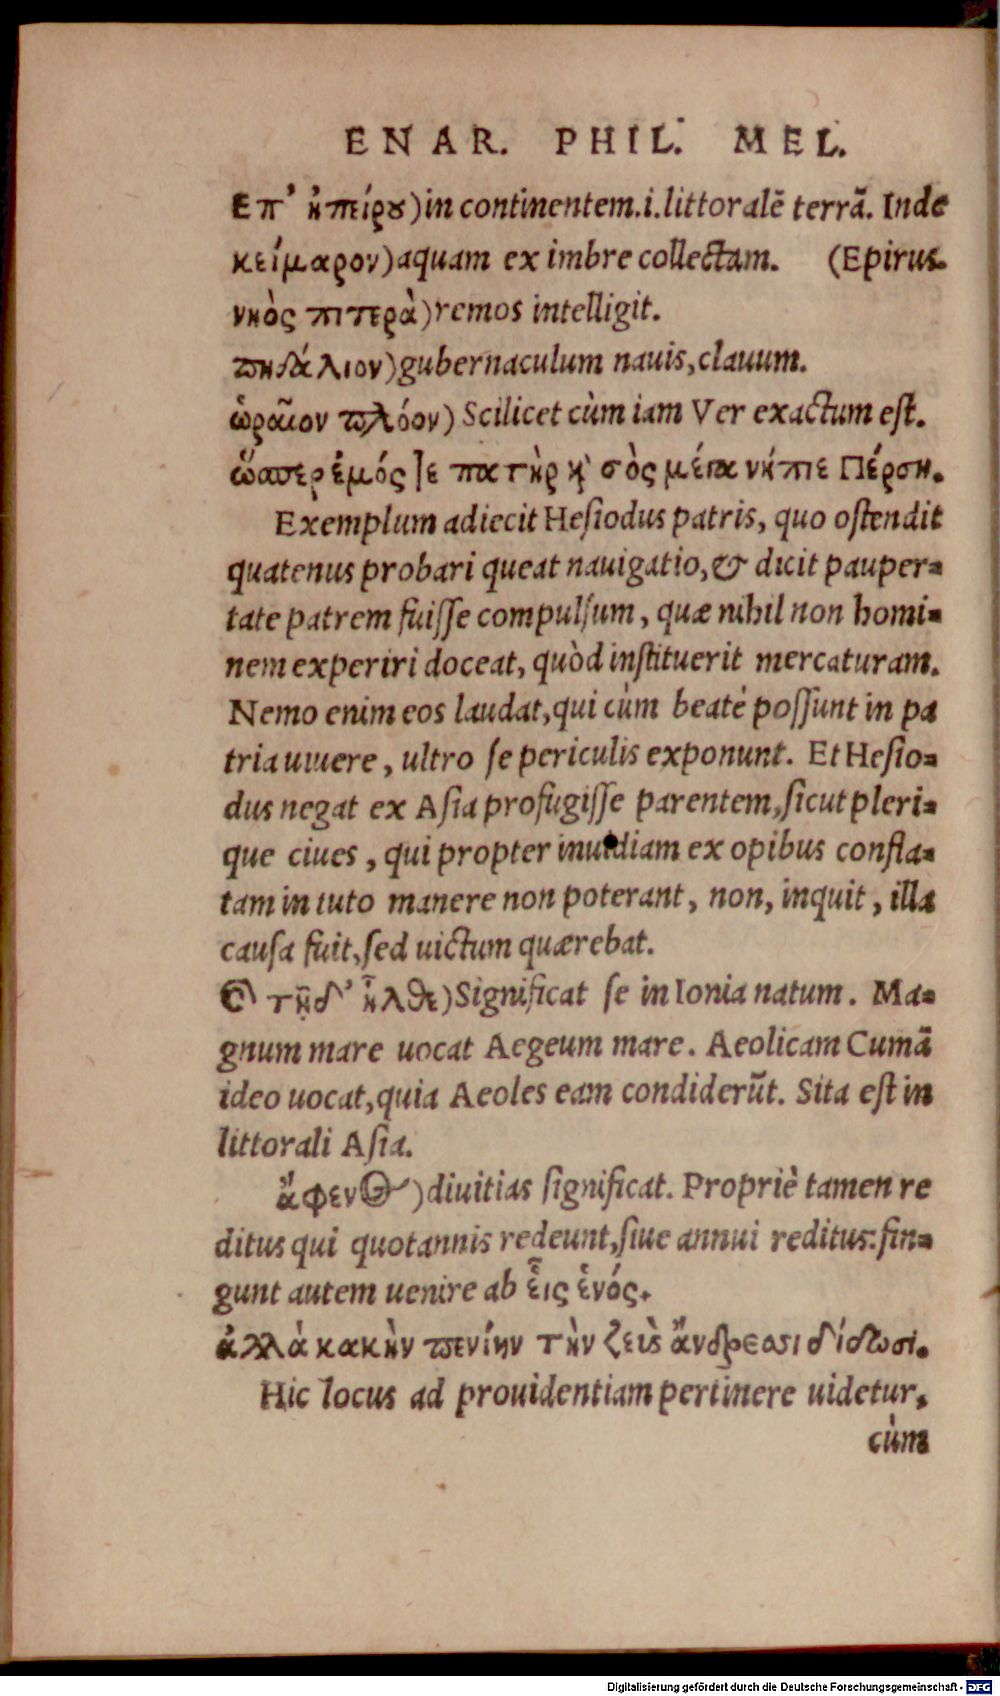 ENAR. PHIL. MEL.
Επ' ἠπείρȣ)in continentem.i.littoralẽ terrã. Inde
κείμαρον)aquam ex imbre collectam. (Epirus.
νηὸς πτερὰ)remos intelligit.
πηδάλιον)gubernaculum nauis,clauum.
ὡραῖον πλόον) Scilicet cùm iam Ver exactum est.
ὥσπερ ἐμός τε πατὴρ κ̀ σὸς μέγα νήπιε Πέρση.
Exemplum adiecit Hesiodus patris, quo ostendit
quatenus probari queat nauigatio,& dicit pauper-
tate patrem fuisse compulsum, quæ nihil non homi-
nem experiri doceat, quòd instituerit mercaturam.
Nemo enim eos laudat,qui cùm beatè possunt in pa
tria uiuere, ultro se periculis exponunt. Et Hesio-
dus negat ex Asia profugisse parentem,sicut pleri-
que ciues, qui propter inuidiam ex opibus confla-
tam in tuto manere non poterant, non, inquit, illa
causa fuit,sed uictum quærebat.
Ος τῇδ' ἦλθε)Significat se in Ionia natum. Ma-
gnum mare uocat Aegeum mare. Aeolicam Cumã
ideo uocat,quia Aeoles eam condiderũt. Sita est in
littorali Asia.
ἄφενος)diuitias significat. Propriè tamen re
ditus qui quotannis redeunt,siue annui reditus:fin-
gunt autem uenire ab εἷς ἑνός.
ἀλλὰ κακὴν πενίην τὴν ζεὺς ἄνδρεσσι δίδωσι.
Hic locus ad prouidentiam pertinere uidetur,
cùm
Digitalisierung gefördert durch die Deutsche Forschungsgemeinschaft - DFG